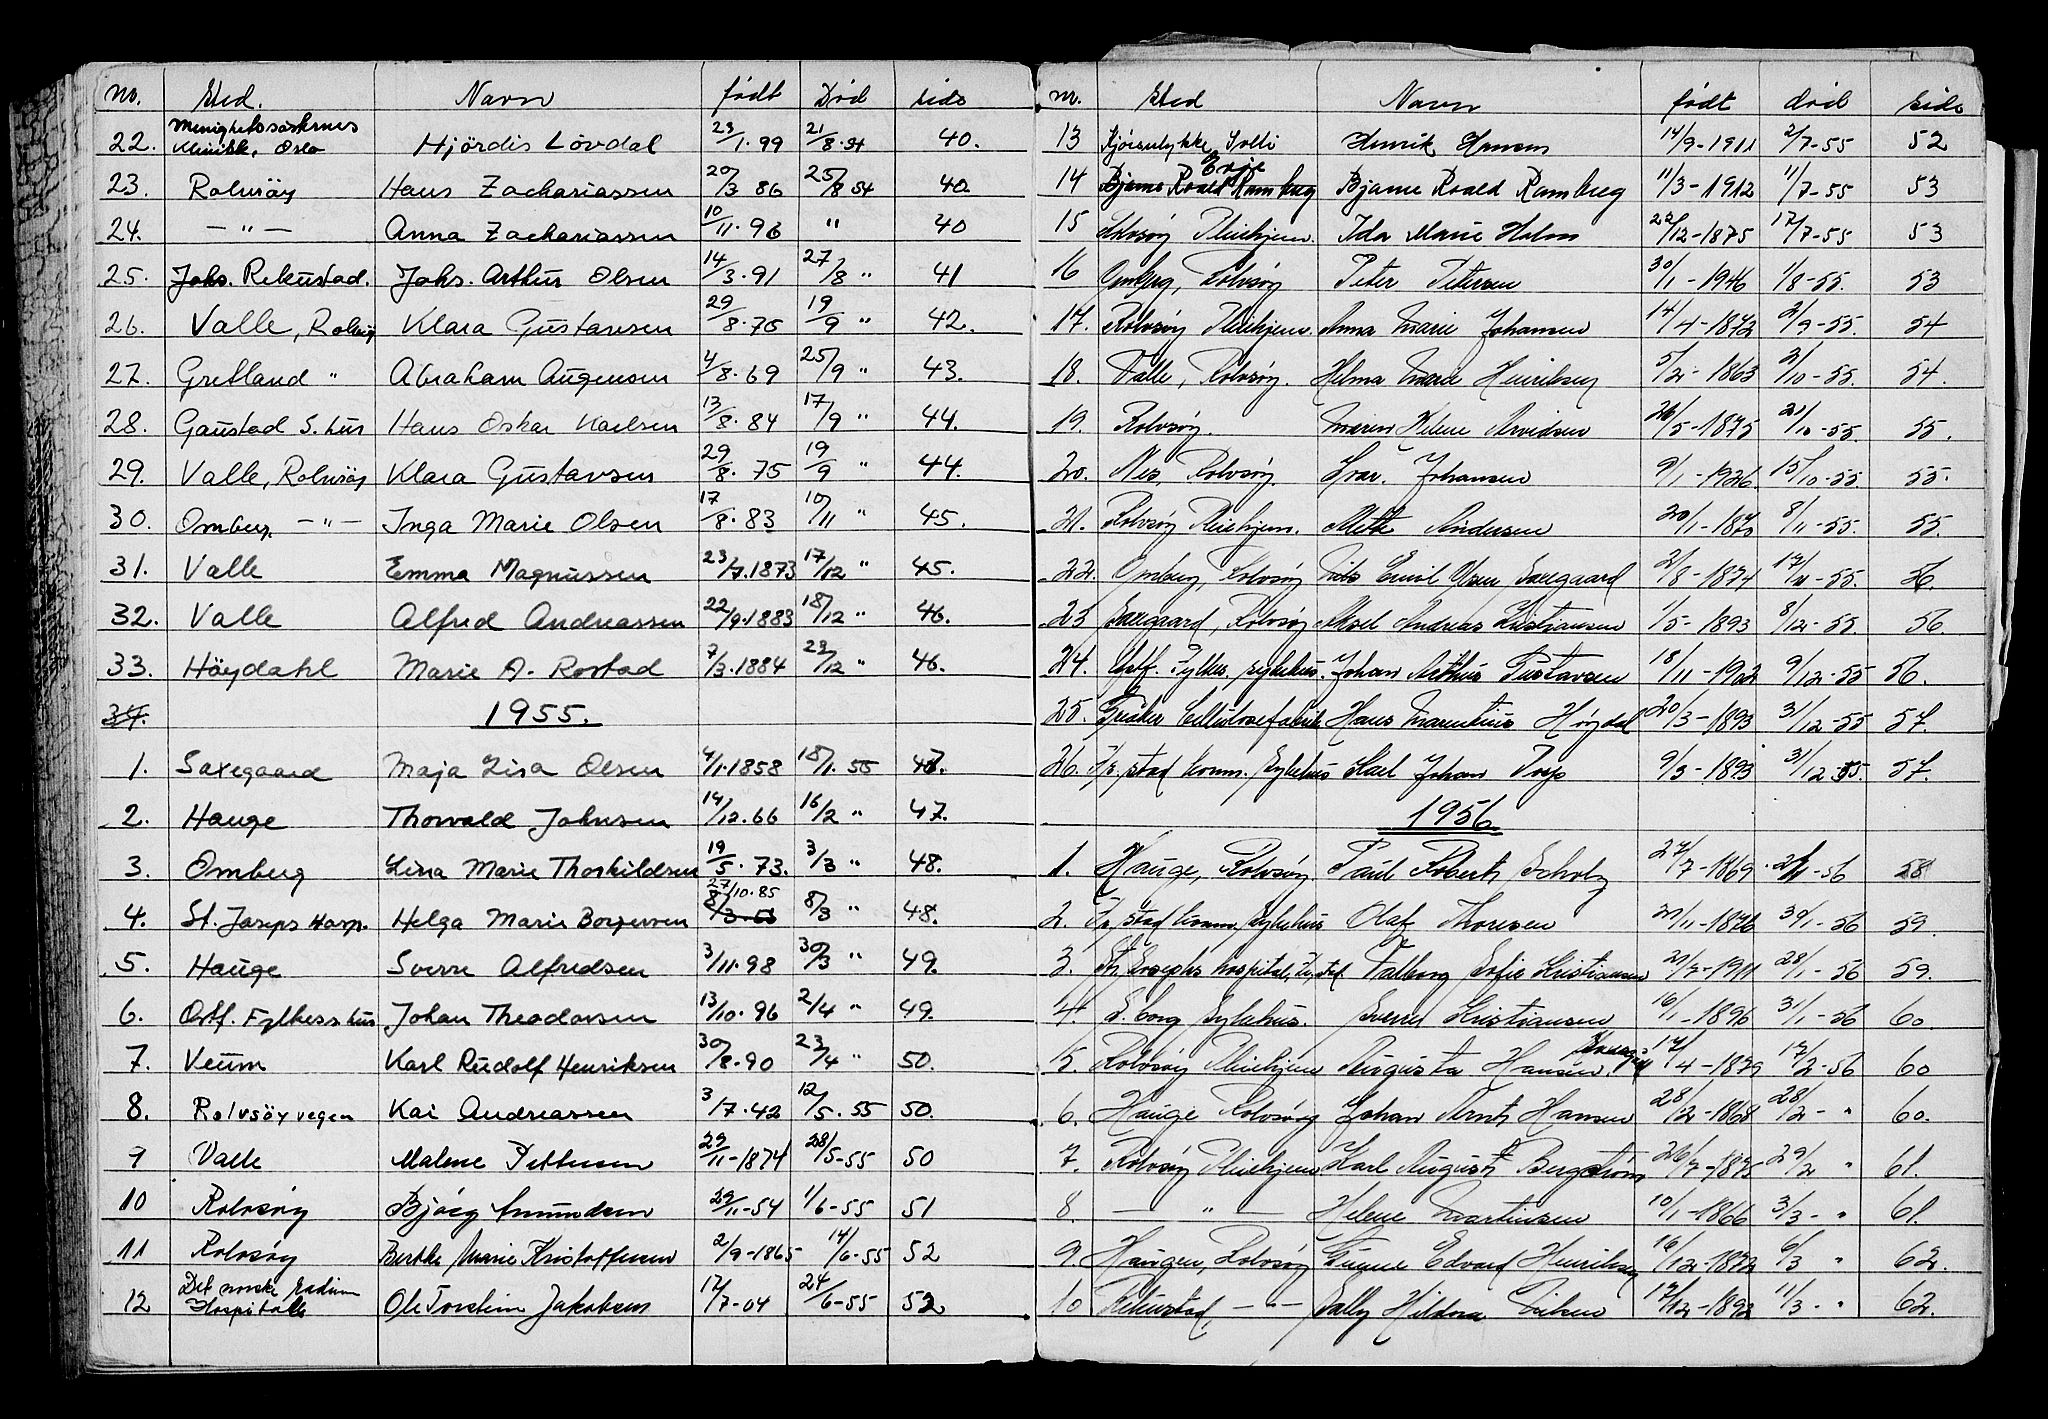 no. Sted. Navn født Död side
22. Menighetssøstrenes Klinikk, Oslo Hjördis Lövdal 23/1.99 21/8.54 40.
23. Rolvsöy Hans Zachariassen 20/3 86 25/8 54 40
24. — " — Anna Zachariassen 10/11.96 " 40
25. Johs. Rekustad. Johs. Arthur Olsen 14/3.91 27/8 " 41
26. Valle, Rolvsöy Klara Gustavsen 29/8.75 19/9 " 42.
27. Gretland " Abraham Augensen 4/8.69 25/9 " 43.
28. Gaustad S.hus Hans Oskar Karlsen 13/8.84 17/9 " 44.
29. Valle, Rolvsöy Klara Gustavsen 29/8.75 19/9 " 44.
30. Omberg — " — Inga Marie Olsen 17/8.83 10/11 " 45.
31. Valle Emma Magnussen 23/7.1873 17/12 " 45.
32. Valle Alfred Andreassen 22/9.1883 18/12 " 46.
33. Höydahl Marie A. Rostad 7/3.1884 23/12 " 46.
34. 1955.
1. Saxegaard Maja Lisa Olsen 4/1.1858 18/1.55 47.
2. Hauge Thorvald Johnsen 14/12.66 16/2 " 47.
3. Omberg Lina Marie Thorkildsen 19/5.73. 3/3 " 48.
4. St. Joseps Hosp. Helga Marie Borgersen 27/10.85 8/3 " 48.
5. Hauge Sverre Alfredsen 3/11.98 30/3 " 49.
6. Østf. Fylkess.hus Johan Theodorsen 13/10.96 2/4 " 49.
7. Veum Karl Rudolf Henriksen 30/8.90 23/4 " 50.
8. Rolvsöyvegen Kai Andreassen 3/7.42 12/5.55 50.
9 Valle Malene Pettersen 29/11-1874 28/5-55 50
10 Rolvsøy Bjørg Amundsen 29/11-54 1/6-55 51
11 Rolvsøy Berthe Marie Kristoffersen 2/9-1865 14/6-55 52
12 Det norske Radium Hospitalet Ole Torstein Jakobsen 17/7-04 24/6-55 52
nr. Sted Navn født død side
13 Solli Henrik Hansen 14/9-1911 2/7-55 52
14 Bjarne Roald Ramberg Bjarne Roald Ramberg 11/3-1912 11/7-55 53
15 Rolvsøy Pleiehjem. Ida Marie Holm 22/12-1875 17/7-55 53
16 Omberg, Rolvsøy Peter Petersen 30/1-1946 1/8-55. 53
17. Rolvsøy Pleiehjem. Anna Marie Johansen 14/4-1872 2/9-55. 54
18. Valle, Rolvsøy. Helma Marie Henriksen 5/12-1863 2/10-55. 54.
19. Rolvsøy. Maren Helene Arvidsen 26/5-1875 21/10-55. 55.
20. Nes, Rolvsøy. Ivar. Johansen 9/1-1926. 15/10-55. 55.
21. Rolvsøy Pleiehjem. Mette Andersen 20/1-1870 8/11-55. 55.
22. Omberg, Rolvsøy Nils Emil Olsen Saxegaard 2/8-1874 17/11-55. 56.
23 Saxegaard, Rolvsøy Aksel Andreas Kristiansen 1/5-1893 8/12-55. 56.
24. Østf. Fylkes. sykehus. Johan Arthur Gustavsen 18/11-1902 9/12-55 56.
25. Greåker Cellulosefabrik Hans Marentius Høydal 20/3-1893 31/12-55 57.
26. Fr.stad komm. sykehus Karl Johan Torp 9/3-1893 31/12-55. 57.
1956
1. Hauge, Rolvsøy Paul Robert Scholz 27/7-1869 2/1-56 58
2. Fr.stad komm. sykehus Olaf Thoresen 21/11-1876 30/1-56 59.
3. St. Josephs hospital, Fr.stad Valborg Sofie Kristiansen 21/7-1911 28/1-56 59.
4. S.borg Sykehus. Sverre Kristiansen 16/1-1896 31/1-56 60.
5. Rolvsøy Pleiehjem Augusta Hansen, 17/4-1879 17/2-56 60
6. Hauge Rolvsøy Johan Arnt Hansen 28/12-1868 28/2- " 60.
7. Rolvsøy Pleiehjem Karl August Bergstrøm 26/7-1875 29/2 " 61.
8. — " — Helene Martinsen 10/1-1866 3/3- " 61.
9. Haugen, Rolvsøy Gunne Edvard Henriksen 16/12-1872 6/3 " 62.
10. Rekustad, — " — Sally Hildora Nilsen 17/12-1892 11/3- " 62.